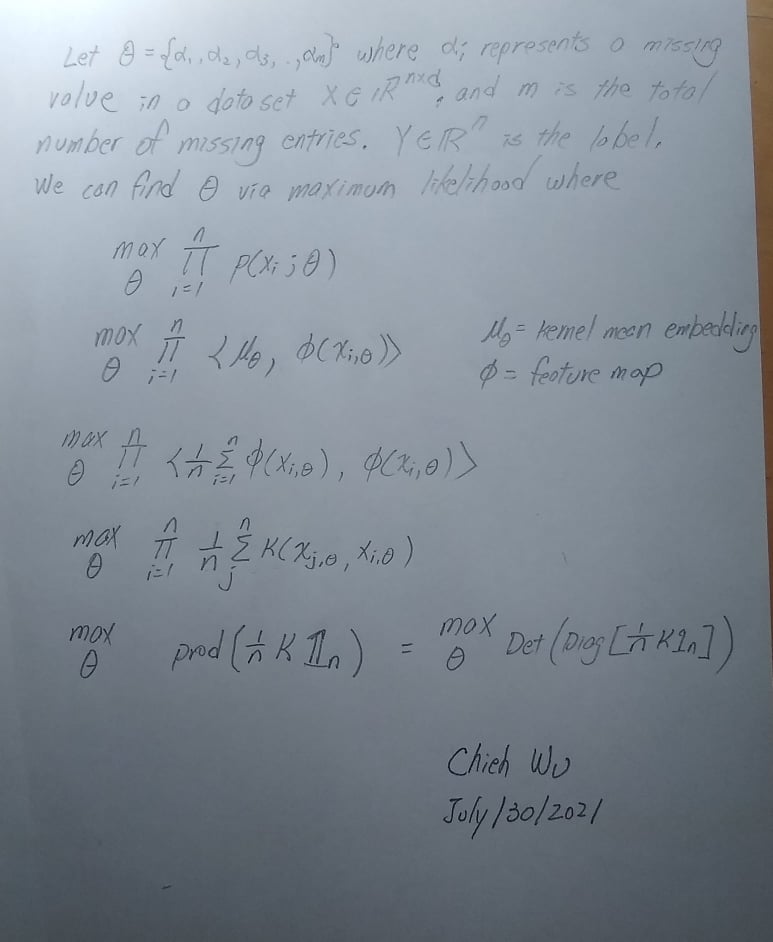 Let θ = {α₁, α₂, α₃, .., αₘ} where αᵢ represents a missing
value in a dataset X ∈ ℝⁿˣᵈ, and m is the total
number of missing entries. Y ∈ ℝⁿ is the label.
We can find θ via maximum likelihood where
max_θ ∏_{i=1}^{n} p(xᵢ; θ)
max_θ ∏_{i=1}^{n} ⟨μ_θ, ϕ(x_{i,θ})⟩
μ_θ = kernel mean embedding
ϕ = feature map
max_θ ∏_{i=1}^{n} ⟨1/n Σ_{i=1}^{n} ϕ(x_{i,θ}), ϕ(x_{i,θ})⟩
max_θ ∏_{i=1}^{n} 1/n Σ_{j}^{n} K(x_{j,θ}, x_{i,θ})
max_θ prod(1/n K 𝟙ₙ) = max_θ Det(Diag[1/n K 𝟙ₙ])
Chieh Wu
July/30/2021